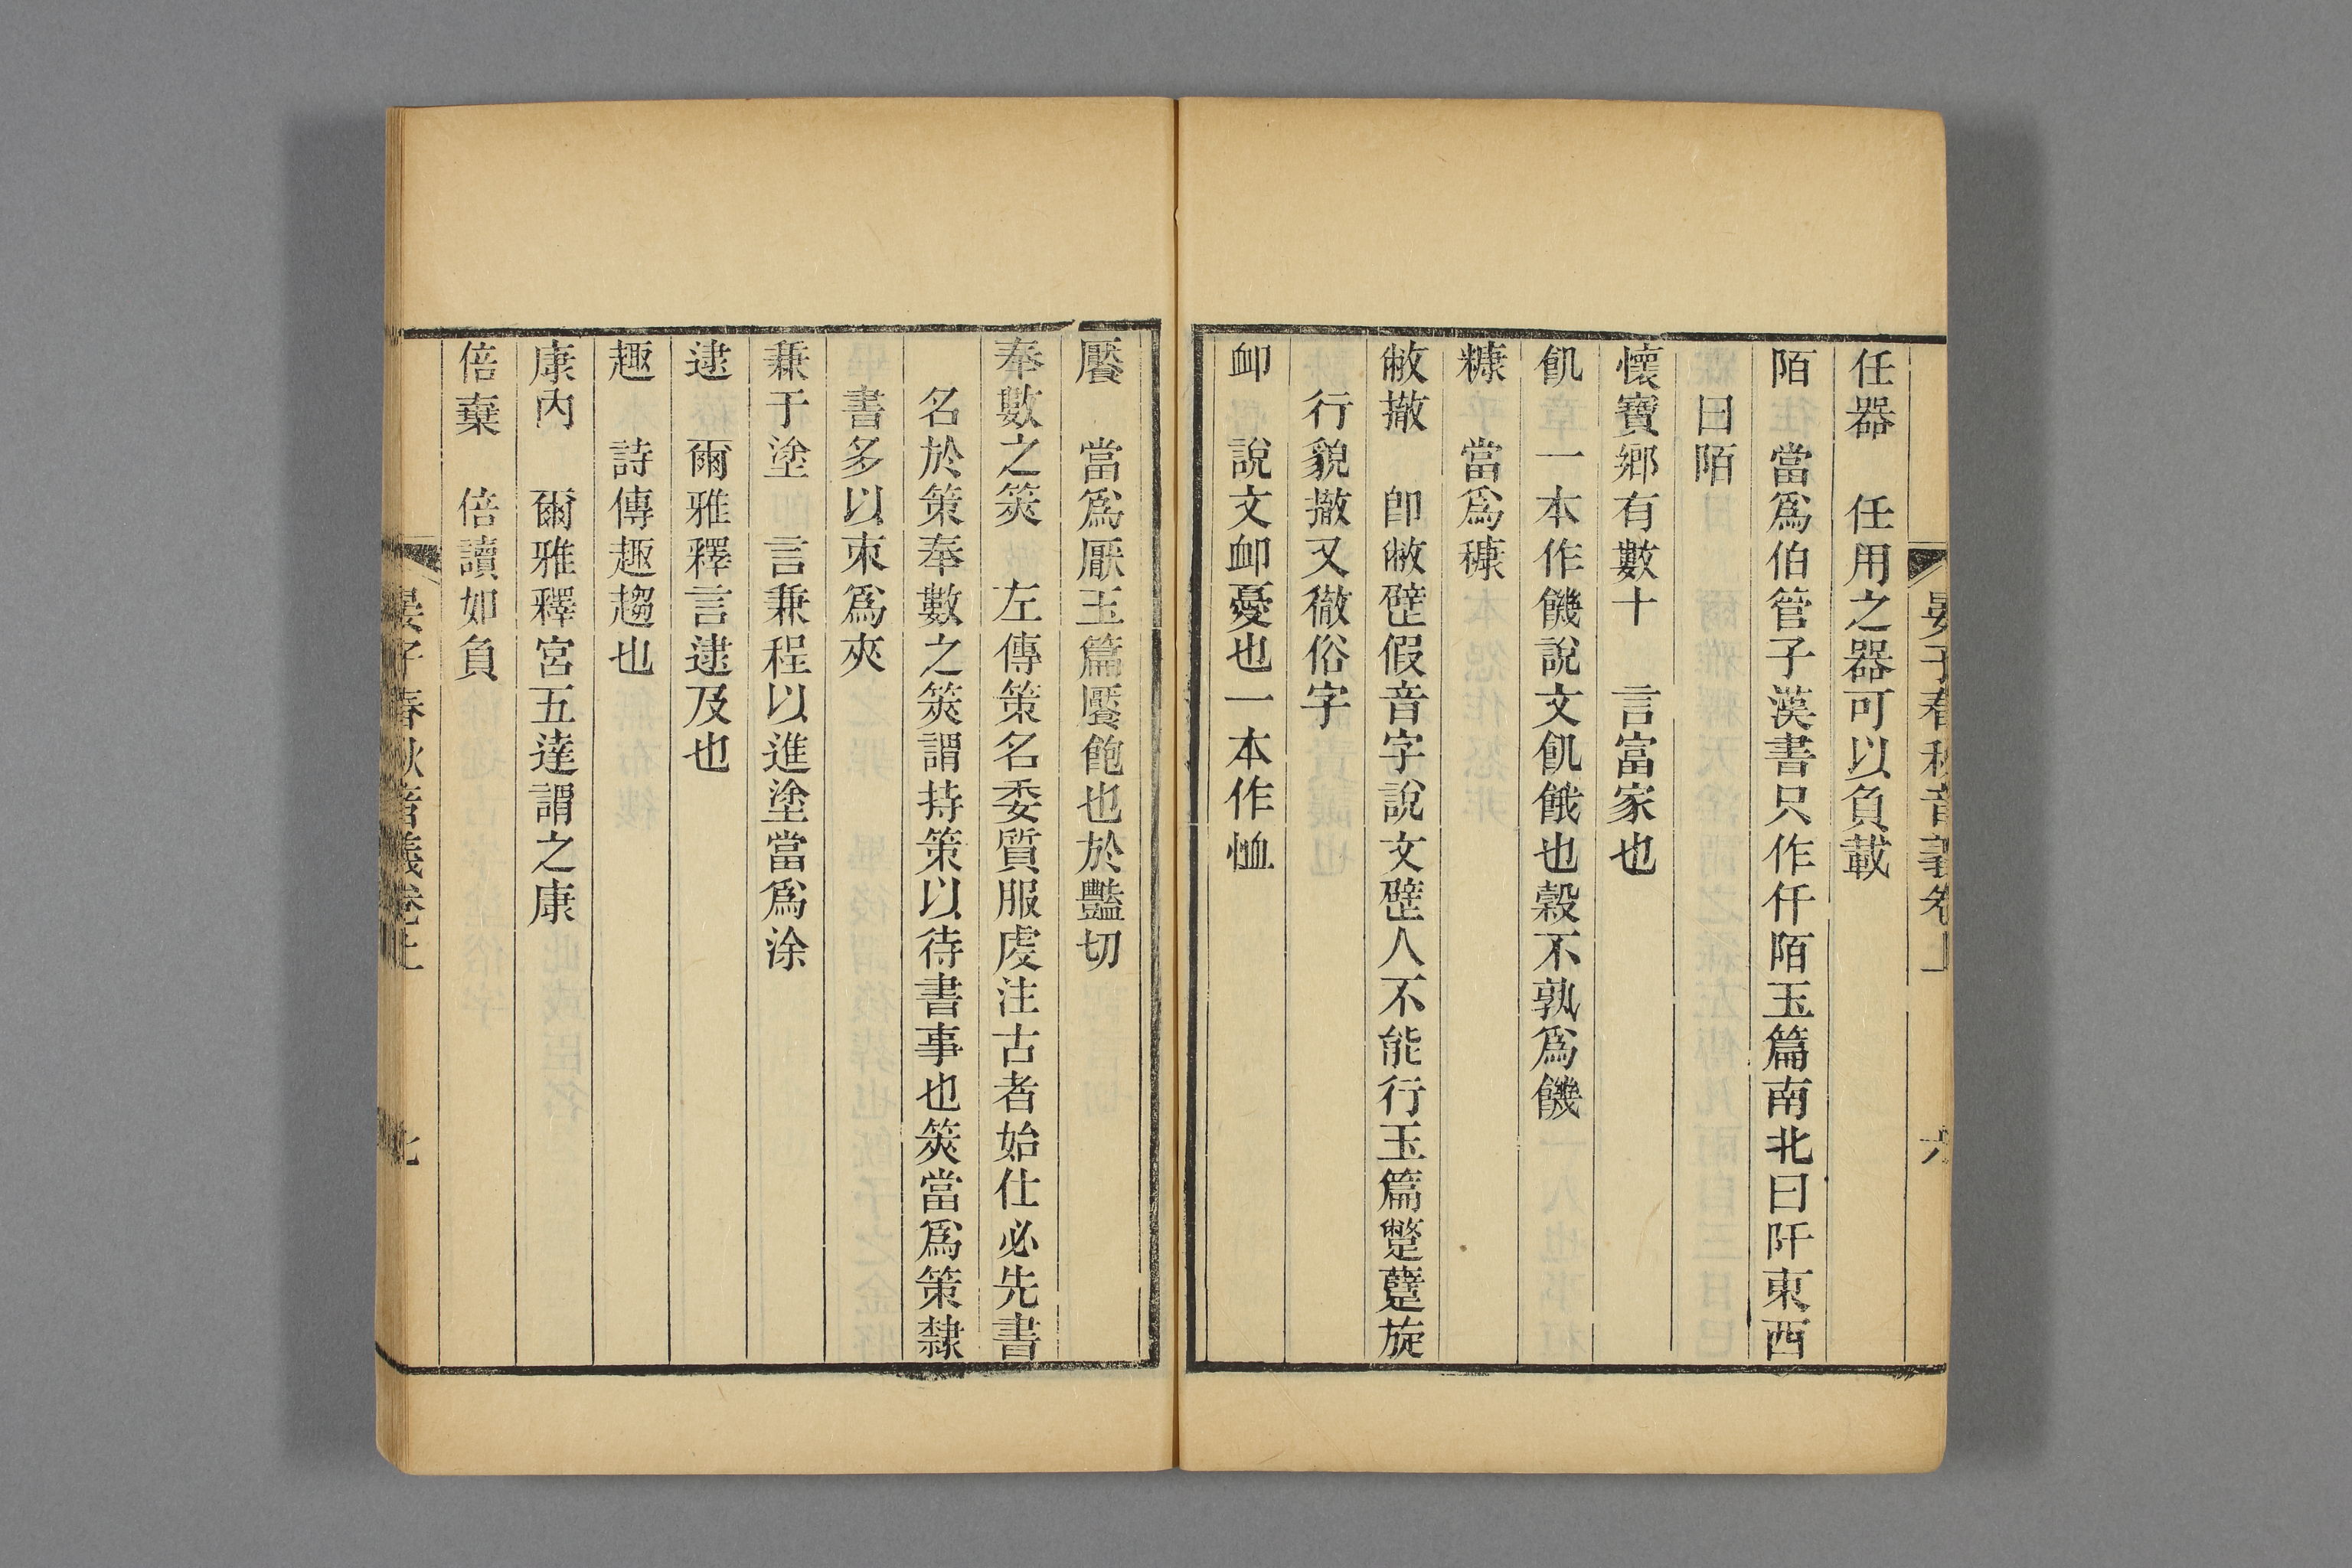 晏子春秋音義卷上 六
任器 任用之器可以負載
陌 當爲伯管子漢書只作仟陌玉篇南北曰阡東西
曰陌
懷寶鄉有數十 言富家也
飢 一本作饑說文飢餓也穀不孰爲饑
糠 當爲穅
敝撤 卽敝壁假音字說文壁人不能行玉篇蹩躠旋
行貌撤又徹俗字
卹 說文卹憂也一本作恤
饜 當爲厭玉篇饜飽也於豔切
奉數之筴 左傳策名委質服虔注古者始仕必先書
名於策奉數之筴謂持策以待書事也筴當爲策隸
書多以朿爲夾
兼于塗 言兼程以進塗當爲涂
逮 爾雅釋言逮及也
趣 詩傳趣趨也
康內 爾雅釋宮五達謂之康
倍棄 倍讀如負
晏子春秋音義卷上 七